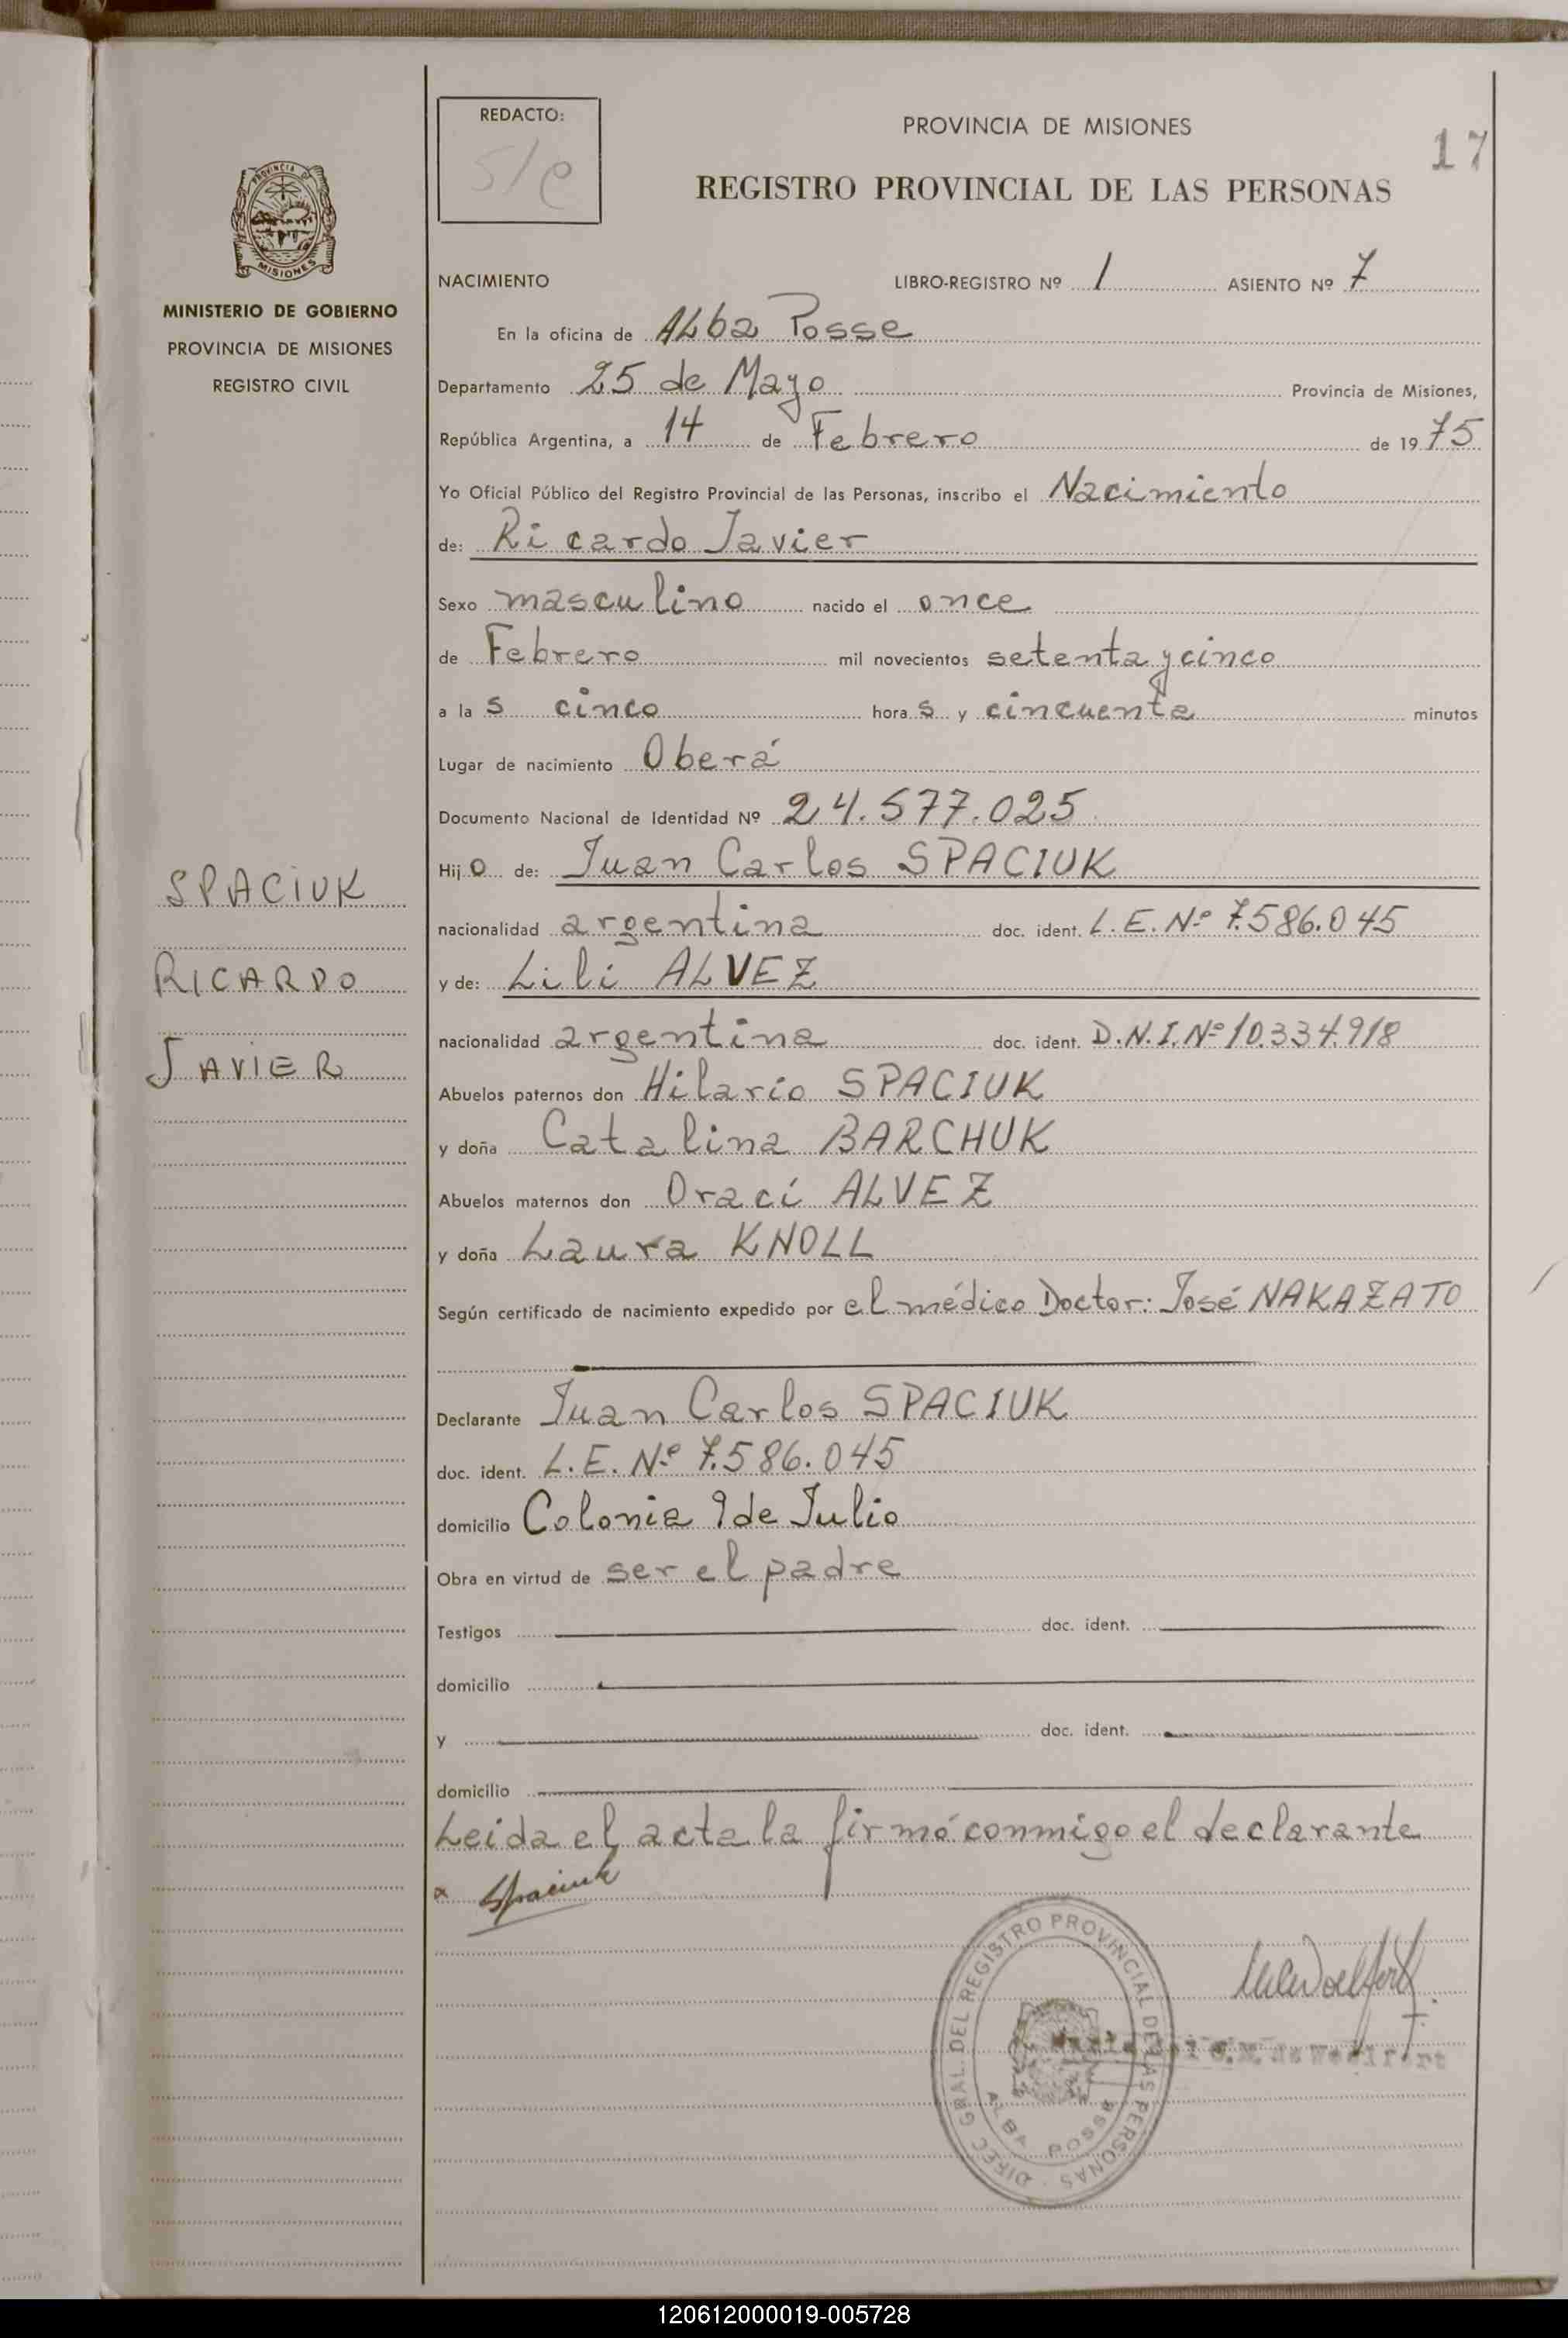 REDACTO:
S/C
PROVINCIA DE MISIONES
17
REGISTRO PROVINCIAL DE LAS PERSONAS
PROVINCIA DE
MISIONES
MINISTERIO DE GOBIERNO
PROVINCIA DE MISIONES
REGISTRO CIVIL
NACIMIENTO LIBRO-REGISTRO Nº 1 ASIENTO Nº 7
En la oficina de Alba Posse
Departamento 25 de Mayo Provincia de Misiones,
República Argentina, a 14 de Febrero de 1975
Yo Oficial Público del Registro Provincial de las Personas, inscribo el Nacimiento
de: Ricardo Javier
Sexo masculino nacido el once
de Febrero mil novecientos setenta y cinco
a las cinco horas y cincuenta minutos
Lugar de nacimiento Oberá
Documento Nacional de Identidad Nº 24.577.025
Hijo de: Juan Carlos SPACIUK
nacionalidad argentina doc. ident. L.E. Nº 7.586.045
y de: Lili ALVEZ
nacionalidad argentina doc. ident. D.N.I. Nº 10.334.918
Abuelos paternos don Hilario SPACIUK
y doña Catalina BARCHUK
Abuelos maternos don Oraci ALVEZ
y doña Laura KNOLL
Según certificado de nacimiento expedido por el médico Doctor: José NAKAZATO
Declarante Juan Carlos SPACIUK
doc. ident. L.E. Nº 7.586.045
domicilio Colonia 9 de Julio
Obra en virtud de ser el padre
Testigos doc. ident.
domicilio
y doc. ident.
domicilio
Leida el acta la firmó conmigo el declarante
x Spaciuk
SPACIUK
RICARDO
JAVIER
DIREC GRAL. DEL REGISTRO PROVINCIAL DE LAS PERSONAS
ALBA POSSE
120612000019-005728